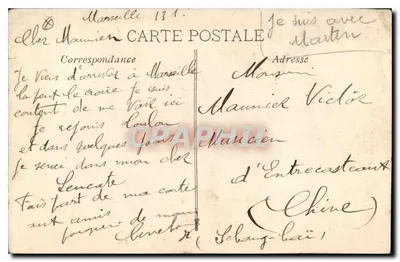 Marseille 13 1.
Cher Maunier
CARTE POSTALE
Je suis avec
Martin
Correspondance
Je viens d'arriver à Marseille
tu peut le croire je suis
content de me voir ici
je rejoins Toulon
et dans quelques jours
je serai dans mon cher
Leucate
Fais part de ma carte
aux amis
Adresse
Monsieur
Maunier Victor
Musicien
d'Entrecasteaux
(Chine)
(Schang-haï)